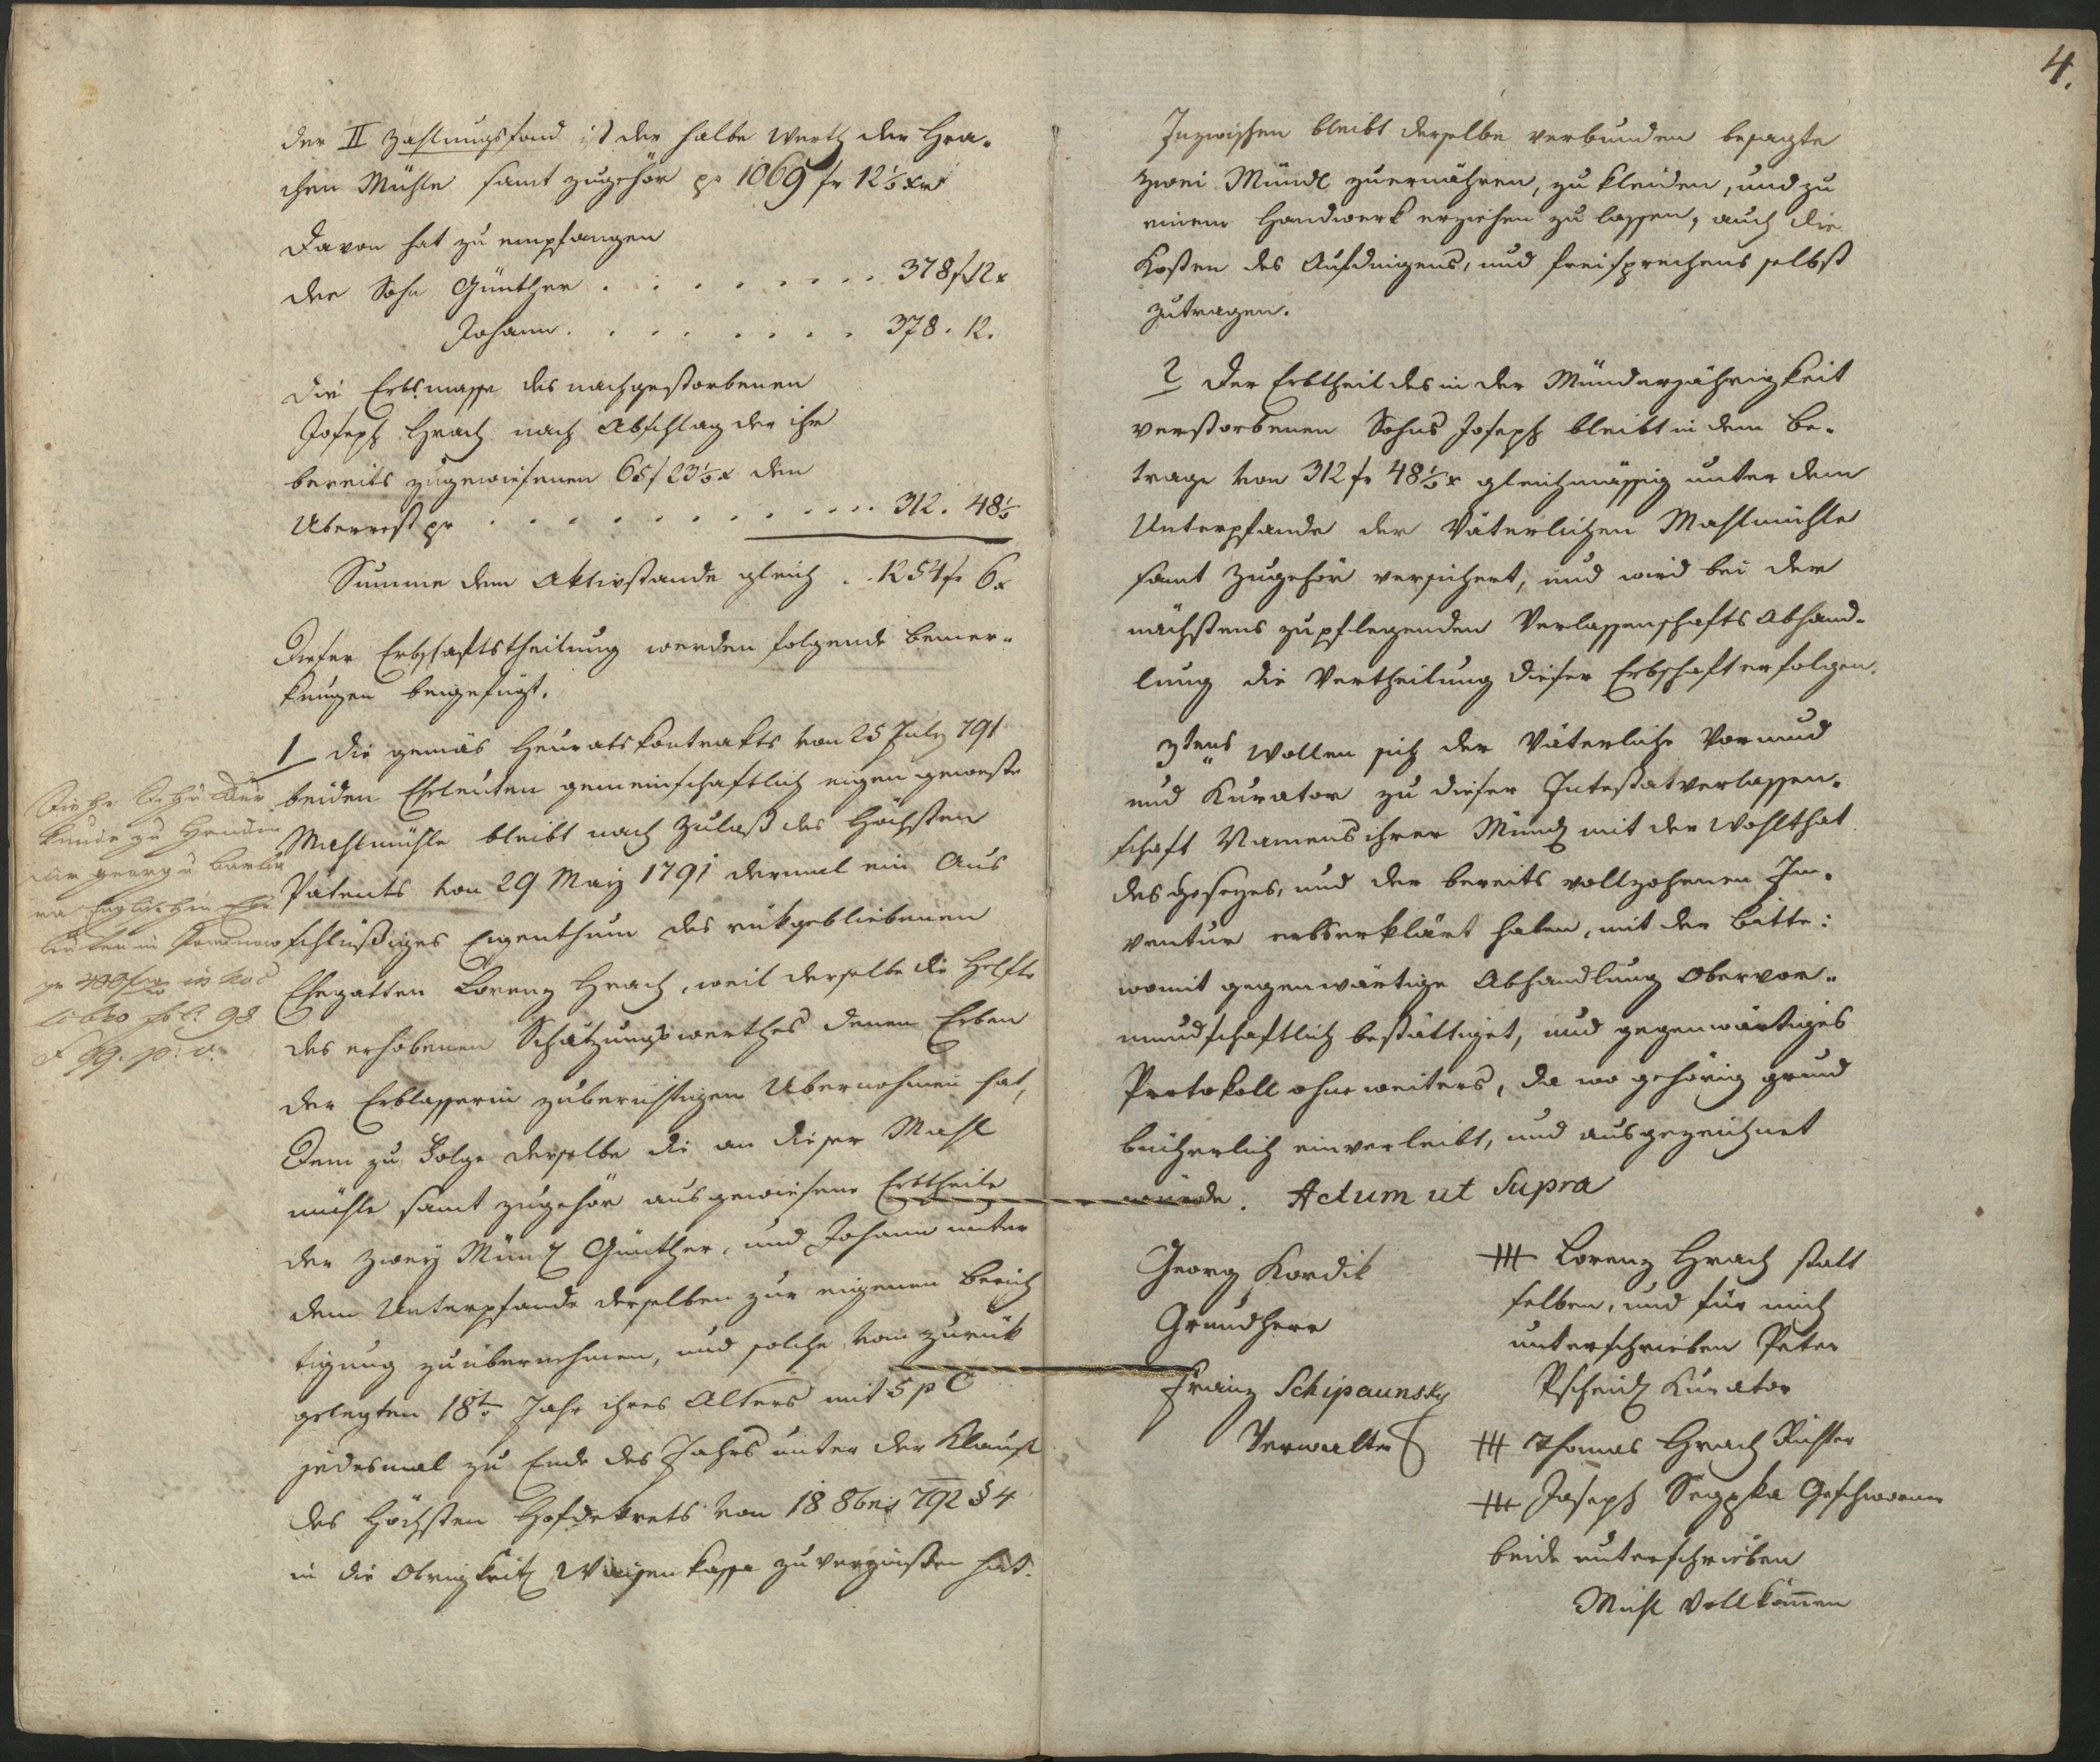 der II Zahlungsfond ist der halbe Werth der Hra-
chen Mühle samt zugehör pr 1069 fr 12½ xr
Davon hat zu empfangen
der Sohn Günther . . . . . . . . 378 f 12 x
Johann . . . . . . . . 378 . 12.
Die Erbsmasse des nachgestorbenen
Joseph Hrach nach Abschlag der ihr
bereits zugewiesenen 65 f 23½ x den
Uberrest pr . . . . . . . . . . . . 312 . 48½
Summe dem Aktivstande gleich . . 1254 fr 6 x
Dieser Erbschaftstheilung werden folgende bemer-
kungen beigefügt.
1 die gemäs Heuratskontrakts von 25 July 791
beiden Eheleuten gemeinschaftlich eigen geweste
Mahlmühle bleibt nach Zulaß des Höchsten
Patents von 29 May 1791 dermal ein Aus
schlüßiges Eigenthum des rükgebliebenen
Ehegatten Lorenz Hrach, weil derselbe die Helfte
des erhobenen Schätzungswerthes denen Erben
der Erblasserin zuberichtigen Ubernohmen hat,
Dem zu Folge derselbe die an dieser Mahl
mühle samt zugehör ausgewiesene Erbtheile
der zwey Münd Günther, und Johann unter
dem Unterpfande derselben zur eigenen berich
tigung zuübernehmen, und solche vom zurük
gelegten 18t Jahr ihres Alters mit 5 p C
jedesmal zu Ende des Jahrs unter der Klausl
des Höchsten Hofdekrets von 18 8bris 792 § 4
in die Obrigkeitl Waisenkasse zuverzinsen hat.
georg u Barba
fol. 98
4.
Inzwischen bleibt derselbe verbunden besagte
zwei Mündl zuernähren, zu kleiden, und zu
einem Handwerk erziehen zu lassen, auch die
Kosten des Aufdingens, und freisprechens selbst
zutragen.
2 Der Erbtheil des in der Münderjährigkeit
verstorbenen Sohns Joseph bleibt in dem Be-
trage von 312 fr 48½ x gleichmässig unter dem
Unterpfande der Väterlichen Mahlmühle
samt Zugehör versichert, und wird bei der
nächstens zupflegenden Verlassenschafts Abhand-
lung die Vertheilung dieser Erbschaft erfolgen.
3tens Wollen sich der Väterliche Vormund
und Kurator zu dieser Intestatverlassen-
schaft Namens ihrer Münd mit der Wohlthat
des Gesezes, und der bereits vollzohenen In-
ventur erbserklärt haben, mit der bitte:
womit gegenwärtige Abhandlung Obervor-
mundschaftlich bestättiget, und gegenwärtiges
Protokoll ohne weiters, da wo gehörig grund
bücherlich einverleibt, und ausgezeichnet
würde. Actum ut Supra
Georg Kordik
Grundherr
Franz Schipaunsky
Verwalter
+++ Lorenz Hrach statt
selben, und für mich
unterschrieben Peter
Pscheid Kurator
+++ Thomas Hrach Richter
+++ Joseph Geschworner
beide unterschrieben
Michl Vollkom̄en